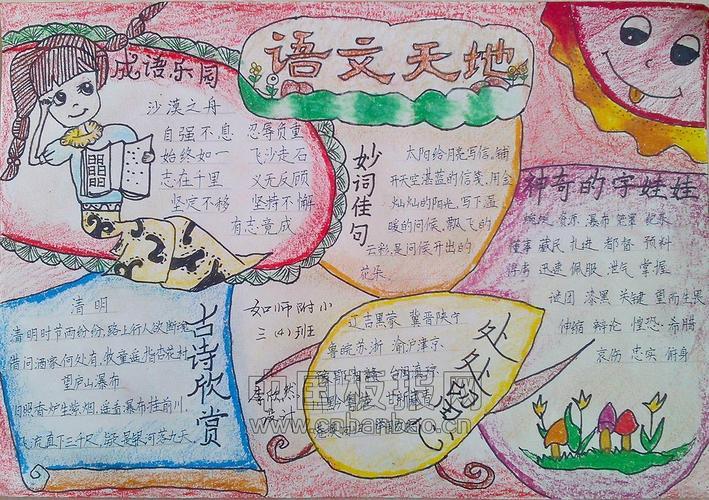 语文天地
成语乐园
沙漠之舟
自强不息 忍辱负重
始终如一 飞沙走石
志在千里 义无反顾
坚定不移 坚持不懈
有志竟成
妙词佳句
太阳给月亮写信。铺
开天空湛蓝的信笺，用金
灿灿的阳光，写下温
暖的问候。飘飞的
云彩，是问候开出的
花朵
神奇的字娃娃
瀑布 笼罩
董事 藏民 扎进 都督 预料
得者 迅速 佩服 泄气 掌握
谜团 漆黑 关键 望而生畏
伸缩 辩论 惶恐 希腊
哀伤 忠实 俯身
古诗欣赏
清明
清明时节雨纷纷，路上行人欲断魂
借问酒家何处有，牧童遥指杏花村
望庐山瀑布
日照香炉生紫烟，遥看瀑布挂前川。
飞流直下三千尺，疑是银河落九天。
如师附小
三(4)班
李欣然
辽吉黑蒙 冀晋陕宁
粤皖苏浙 渝沪津京
中国板报网
www.cnbanbao.cn